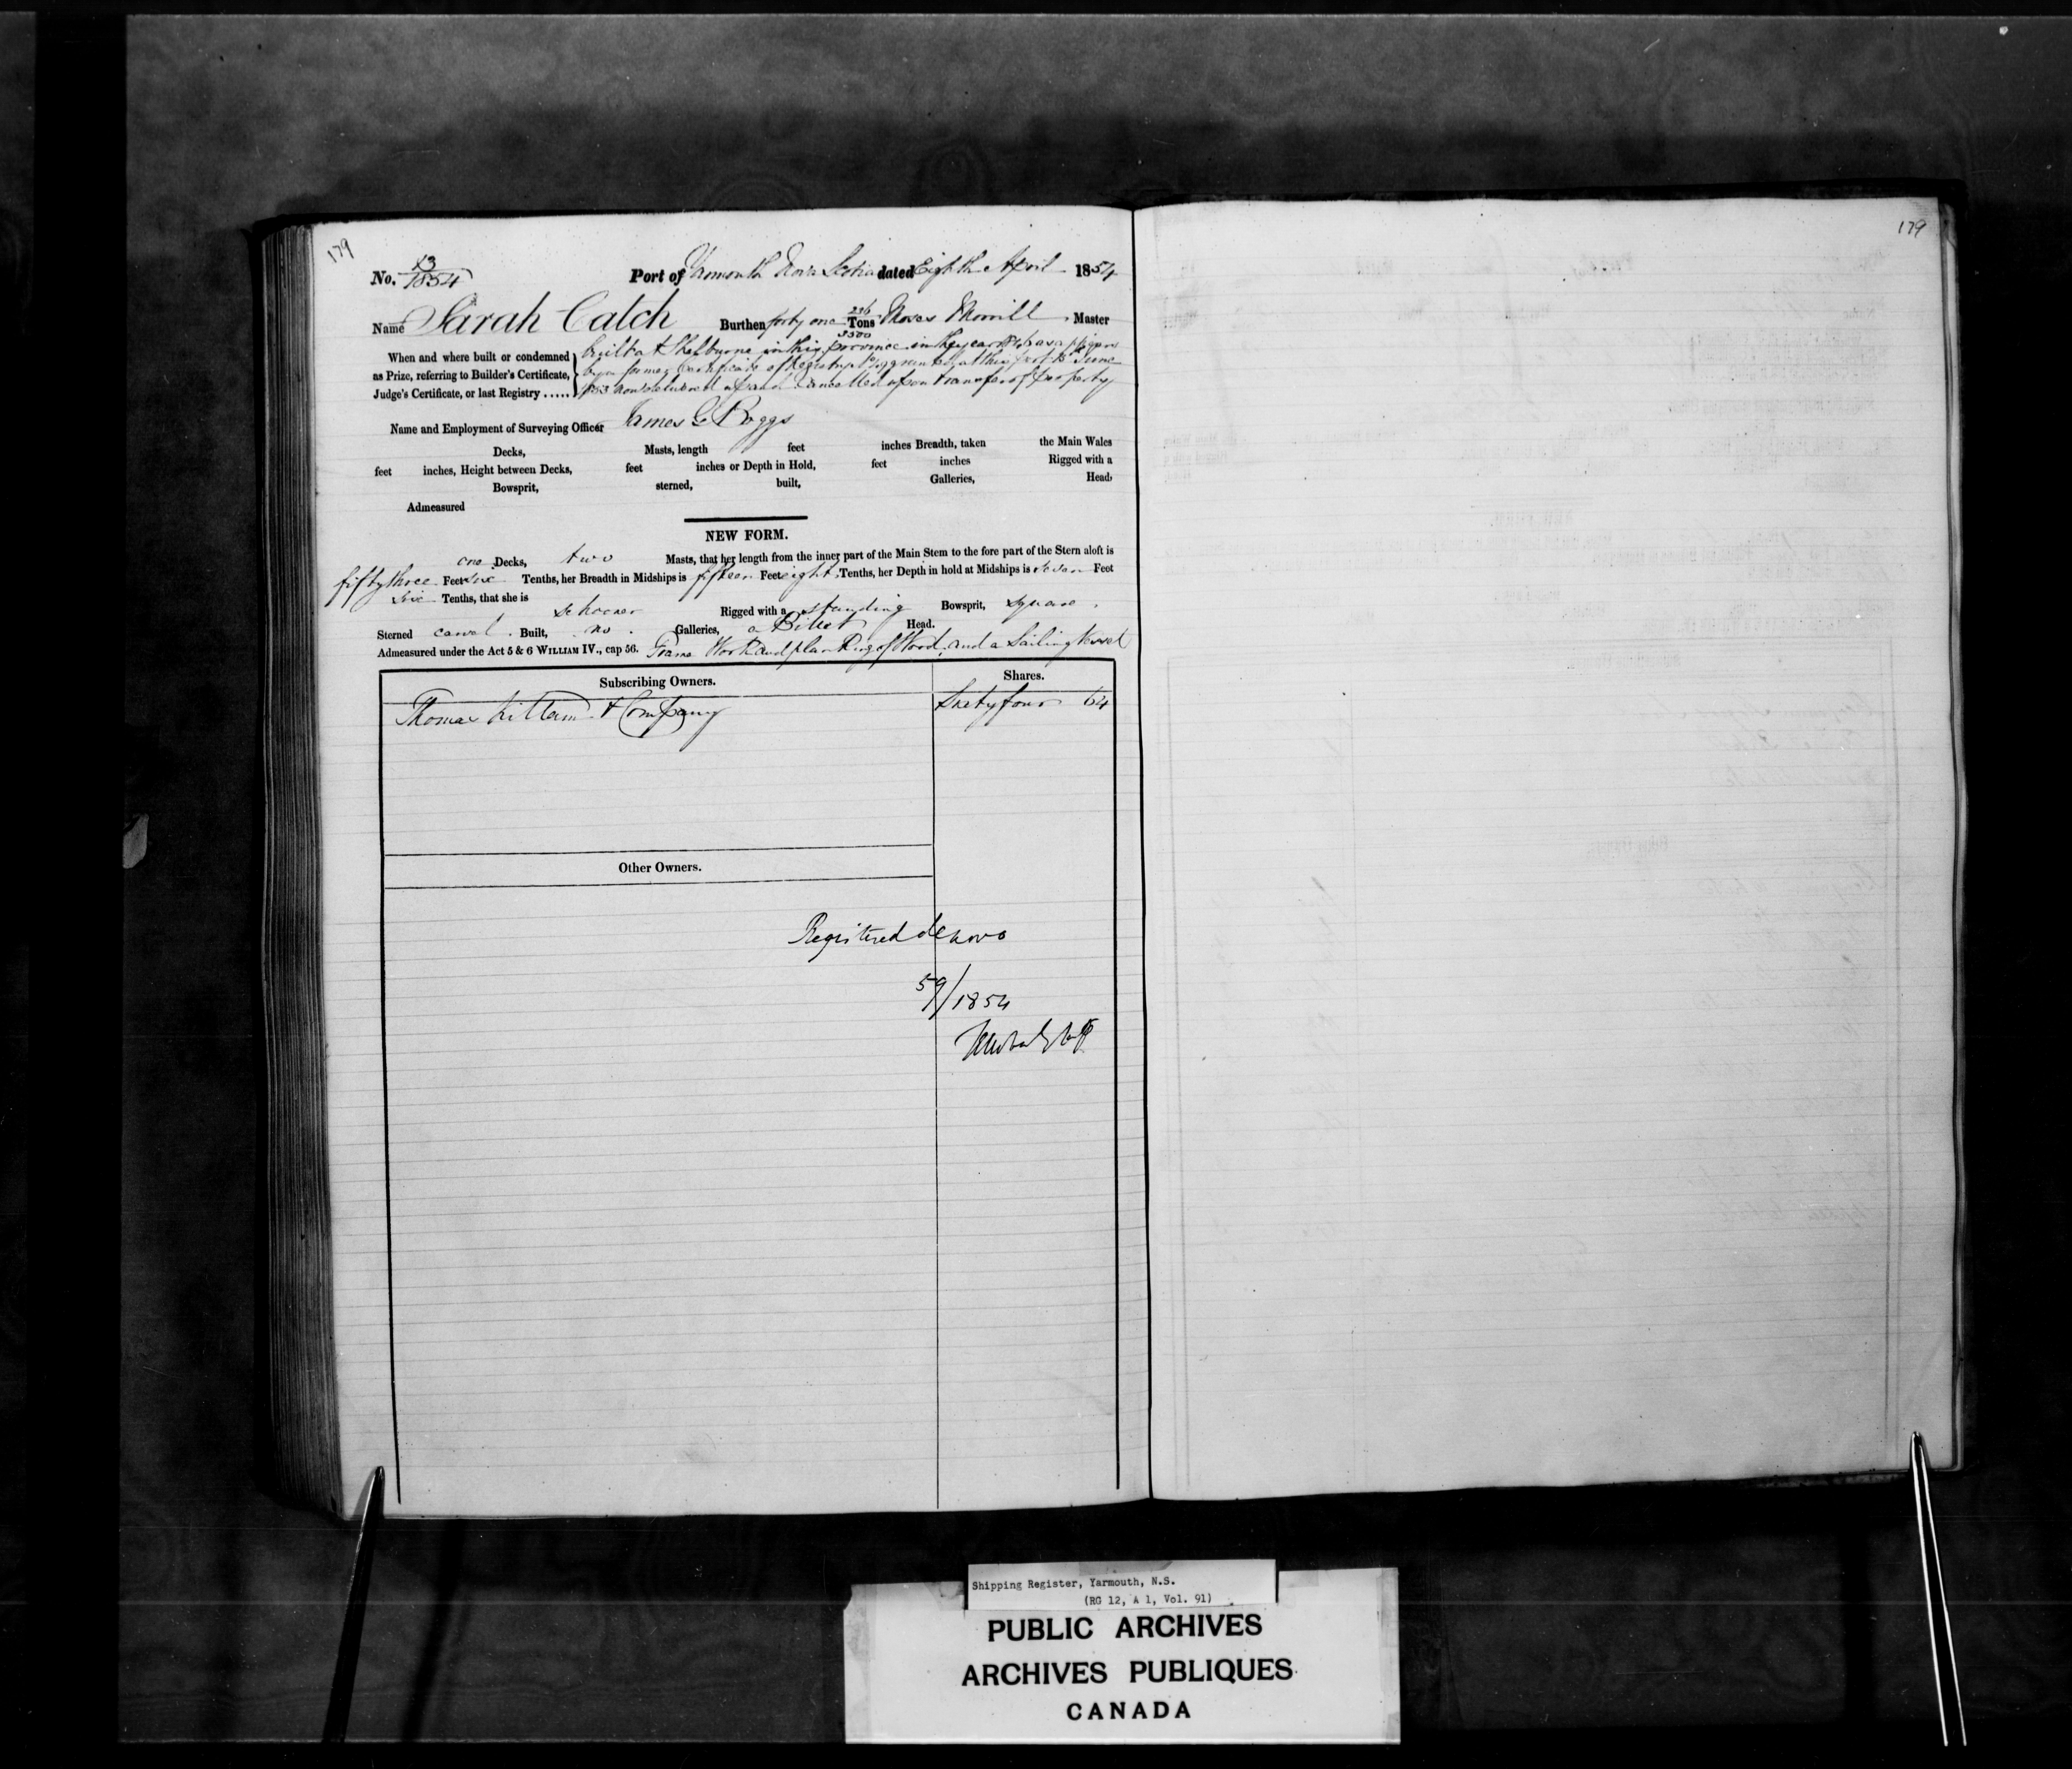 179
179
No. 13/1854 Port of Yarmouth Nova Scotia dated Eighth April 1854
Name Sarah Catch Burthen forty one 236/3500 Tons Moses Morrill, Master
When and where built or condemned built at Shelburne in this province in the year as appears
as Prize, referring to Builder's Certificate, by a former Certificate of Registry granted at this port June
Judge's Certificate, or last Registry ..... 1853 now delivered up and cancelled upon transfer of property
Name and Employment of Surveying Officer James G Boggs
Decks, Masts, length feet inches Breadth, taken the Main Wales
feet inches, Height between Decks, feet inches or Depth in Hold, feet inches Rigged with a
Bowsprit, sterned, built, Galleries, Head,
Admeasured
NEW FORM.
one Decks, two Masts, that her length from the inner part of the Main Stem to the fore part of the Stern aloft is
fifty three Feet six Tenths, her Breadth in Midships is fifteen Feet eight Tenths, her Depth in hold at Midships is seven Feet
six Tenths, that she is schooner Rigged with a standing Bowsprit, square
Sterned carvel Built, no Galleries, a Billet Head.
Admeasured under the Act 5 & 6 WILLIAM IV., cap 56. Frame Work and planking of Wood, and a Sailing Vessel
Subscribing Owners. Shares.
Thomas Killam & Company Sixty four 64
Other Owners.
Registered de novo
59/1854
Shipping Register, Yarmouth, N.S.
(RG 12, A 1, Vol. 91)
PUBLIC ARCHIVES
ARCHIVES PUBLIQUES
CANADA